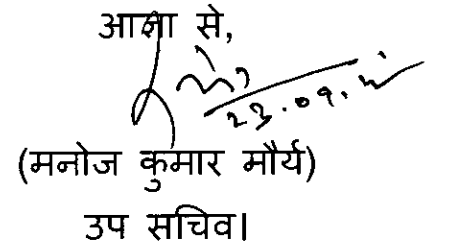 आज्ञा से,
23.09.
(मनोज कुमार मौर्य)
उप सचिव।